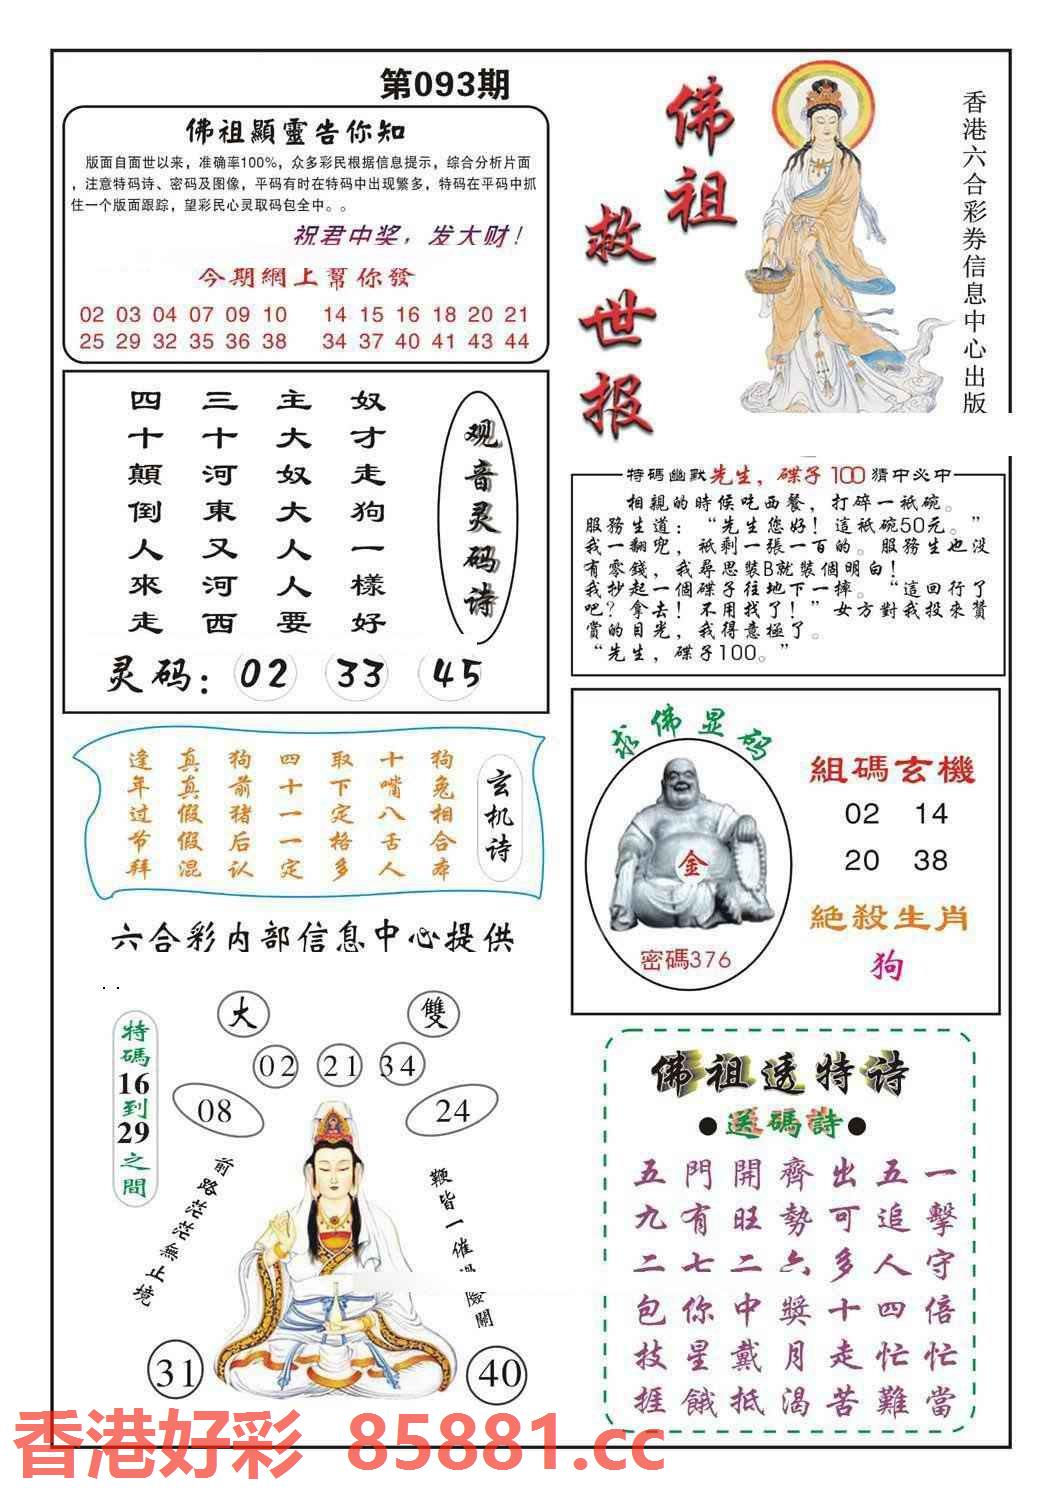 第093期
佛祖顯靈告你知
版面自面世以来，准确率100%，众多彩民根据信息提示，综合分析片面
，注意特码诗、密码及图像，平码有时在特码中出现繁多，特码在平码中抓
住一个版面跟踪，望彩民心灵取码包全中。。
祝君中奖，发大财！
今期網上幫你發
02 03 04 07 09 10 14 15 16 18 20 21
25 29 32 35 36 38 34 37 40 41 43 44
佛祖
救世报
香港六合彩券信息中心出版
观音灵码诗
奴才走狗一樣好
主大奴大人人要
三十河東又河西
四十顛倒人來走
灵码：02 33 45
特碼幽默先生，碟子100猜中必中
相親的時侯吃西餐，打碎一祇碗。
服務生道：“先生您好！這祇碗50元。”
我一翻兜，祇剩一張一百的。服務生也没
有零錢，我尋思裝B就裝個明白！
我抄起一個碟子往地下一摔。“這回行了
吧？拿去！不用找了！”女方對我投來贊
賞的目光，我得意極了。
“先生，碟子100。”
玄机诗
狗兔相合本
十嘴八舌人
取下定格多
四十一一定
狗前猪后认
真真假假混
逢年过节拜
求佛显码
金
密碼376
組碼玄機
02 14
20 38
絕殺生肖
狗
六合彩内部信息中心提供
特碼16到29之間
大
雙
02 21 34
08
24
前路茫茫無止境
鞭皆一催 險關
31
40
佛祖透特诗
●送碼詩●
一擊守倍忙當
五追人四忙難
出可多十走苦
齊勢六獎月渴
開旺二中戴抵
門有七你星餓
五九二包技捱
香港好彩 85881.cc